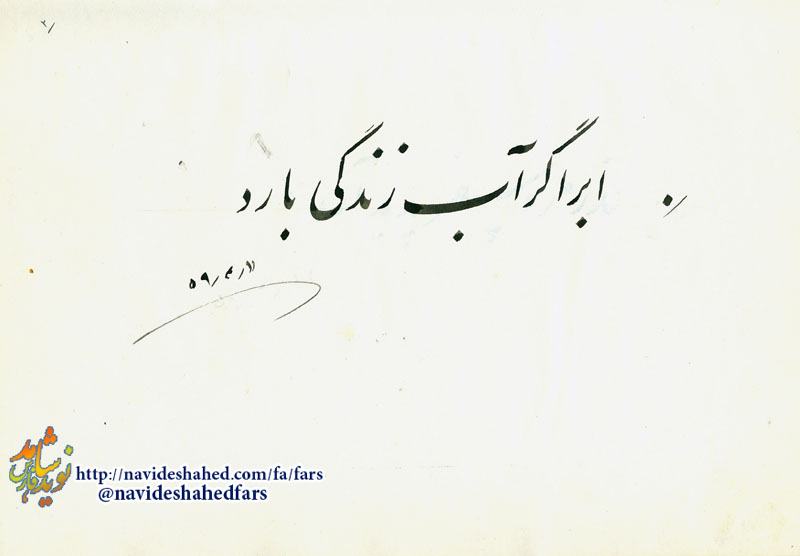 ۲/
ابر اگر آب زندگی بارد
۵۹/۴/۱۱
نوید شاهد فارس
http://navideshahed.com/fa/fars
@navideshahedfars